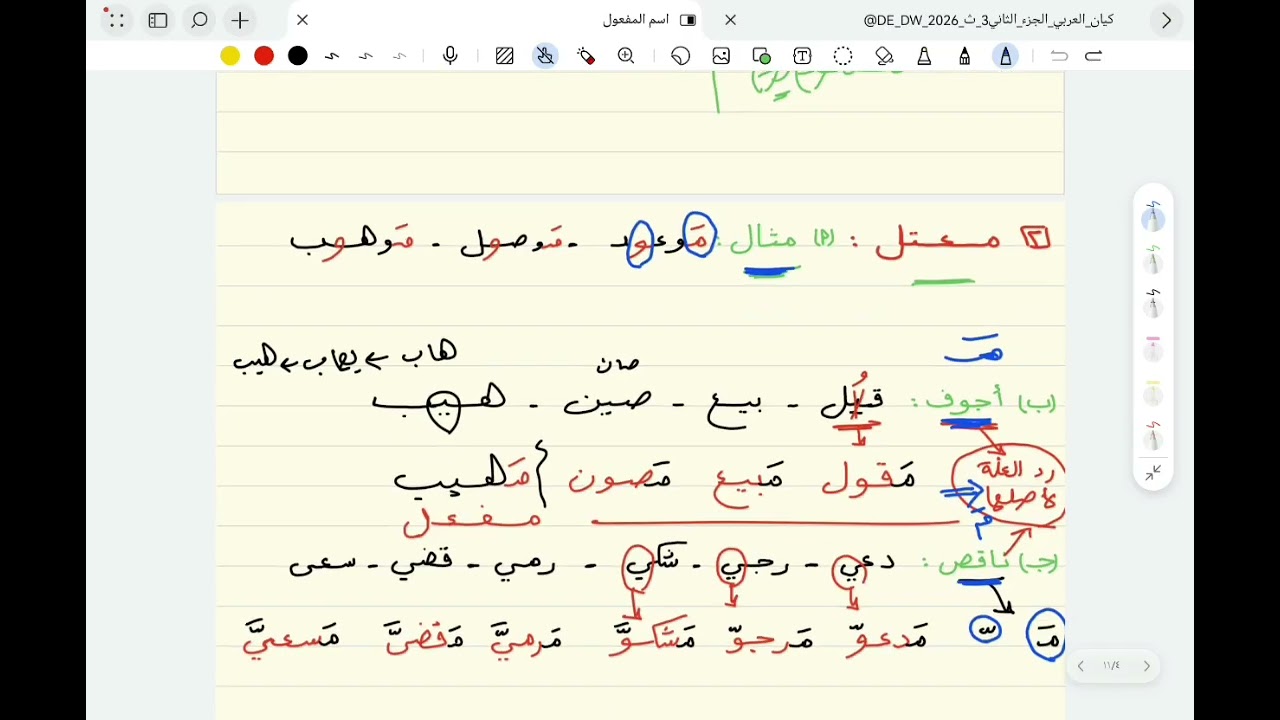 كيان_العربي_الجزء_الثاني3_ث_2026_DE_DW@
اسم المفعول
[٢] معتل : (P) مثال : مَوعود - مَوصول - مَوهوب
مَـ
هاب ← يهاب ← هيب
صان
(ب) أجوف : قيل - بيع - صين - هيب
رد العلة لأصلها
مَقول مَبيع مَصون { مَهيب
مَـ
مفعل
(جـ) ناقص : دعي - رجي - شكي - رمي - قضي - سعى
مَـ ـّ مَدعوّ مَرجوّ مَشكوَّ مَرميَّ مَقضيَّ مَسعيَّ
١١/٤